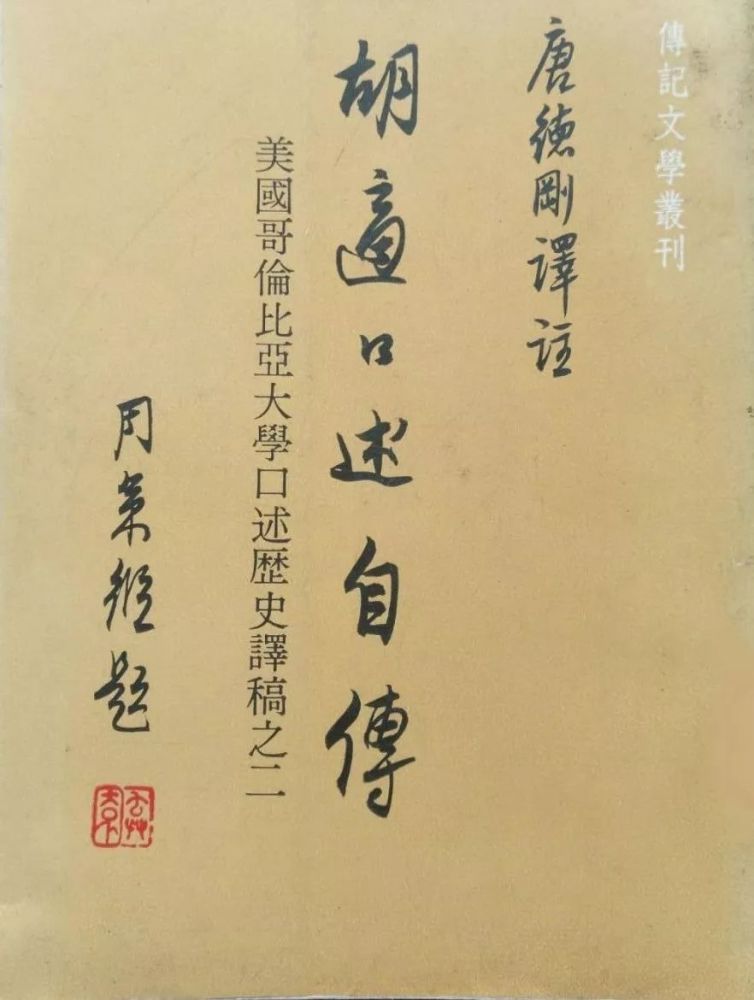 傳記文學叢刊
唐德剛譯註
胡適口述自傳
美國哥倫比亞大學口述歷史譯稿之二
周策縱題